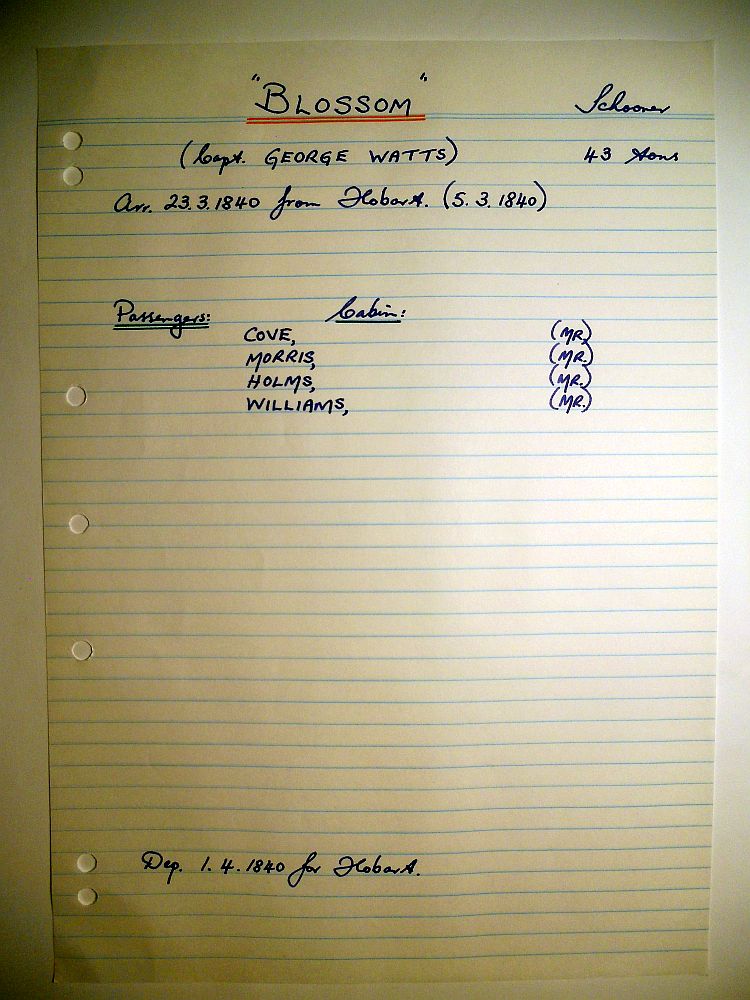 "BLOSSOM" Schooner
(Capt. GEORGE WATTS) 43 tons
Arr. 23.3.1840 from Hobart. (5.3.1840)
Passengers: Cabin:
COVE, (MR)
MORRIS, (MR.)
HOLMS, (MR.)
WILLIAMS, (MR.)
Dep. 1.4.1840 for Hobart.